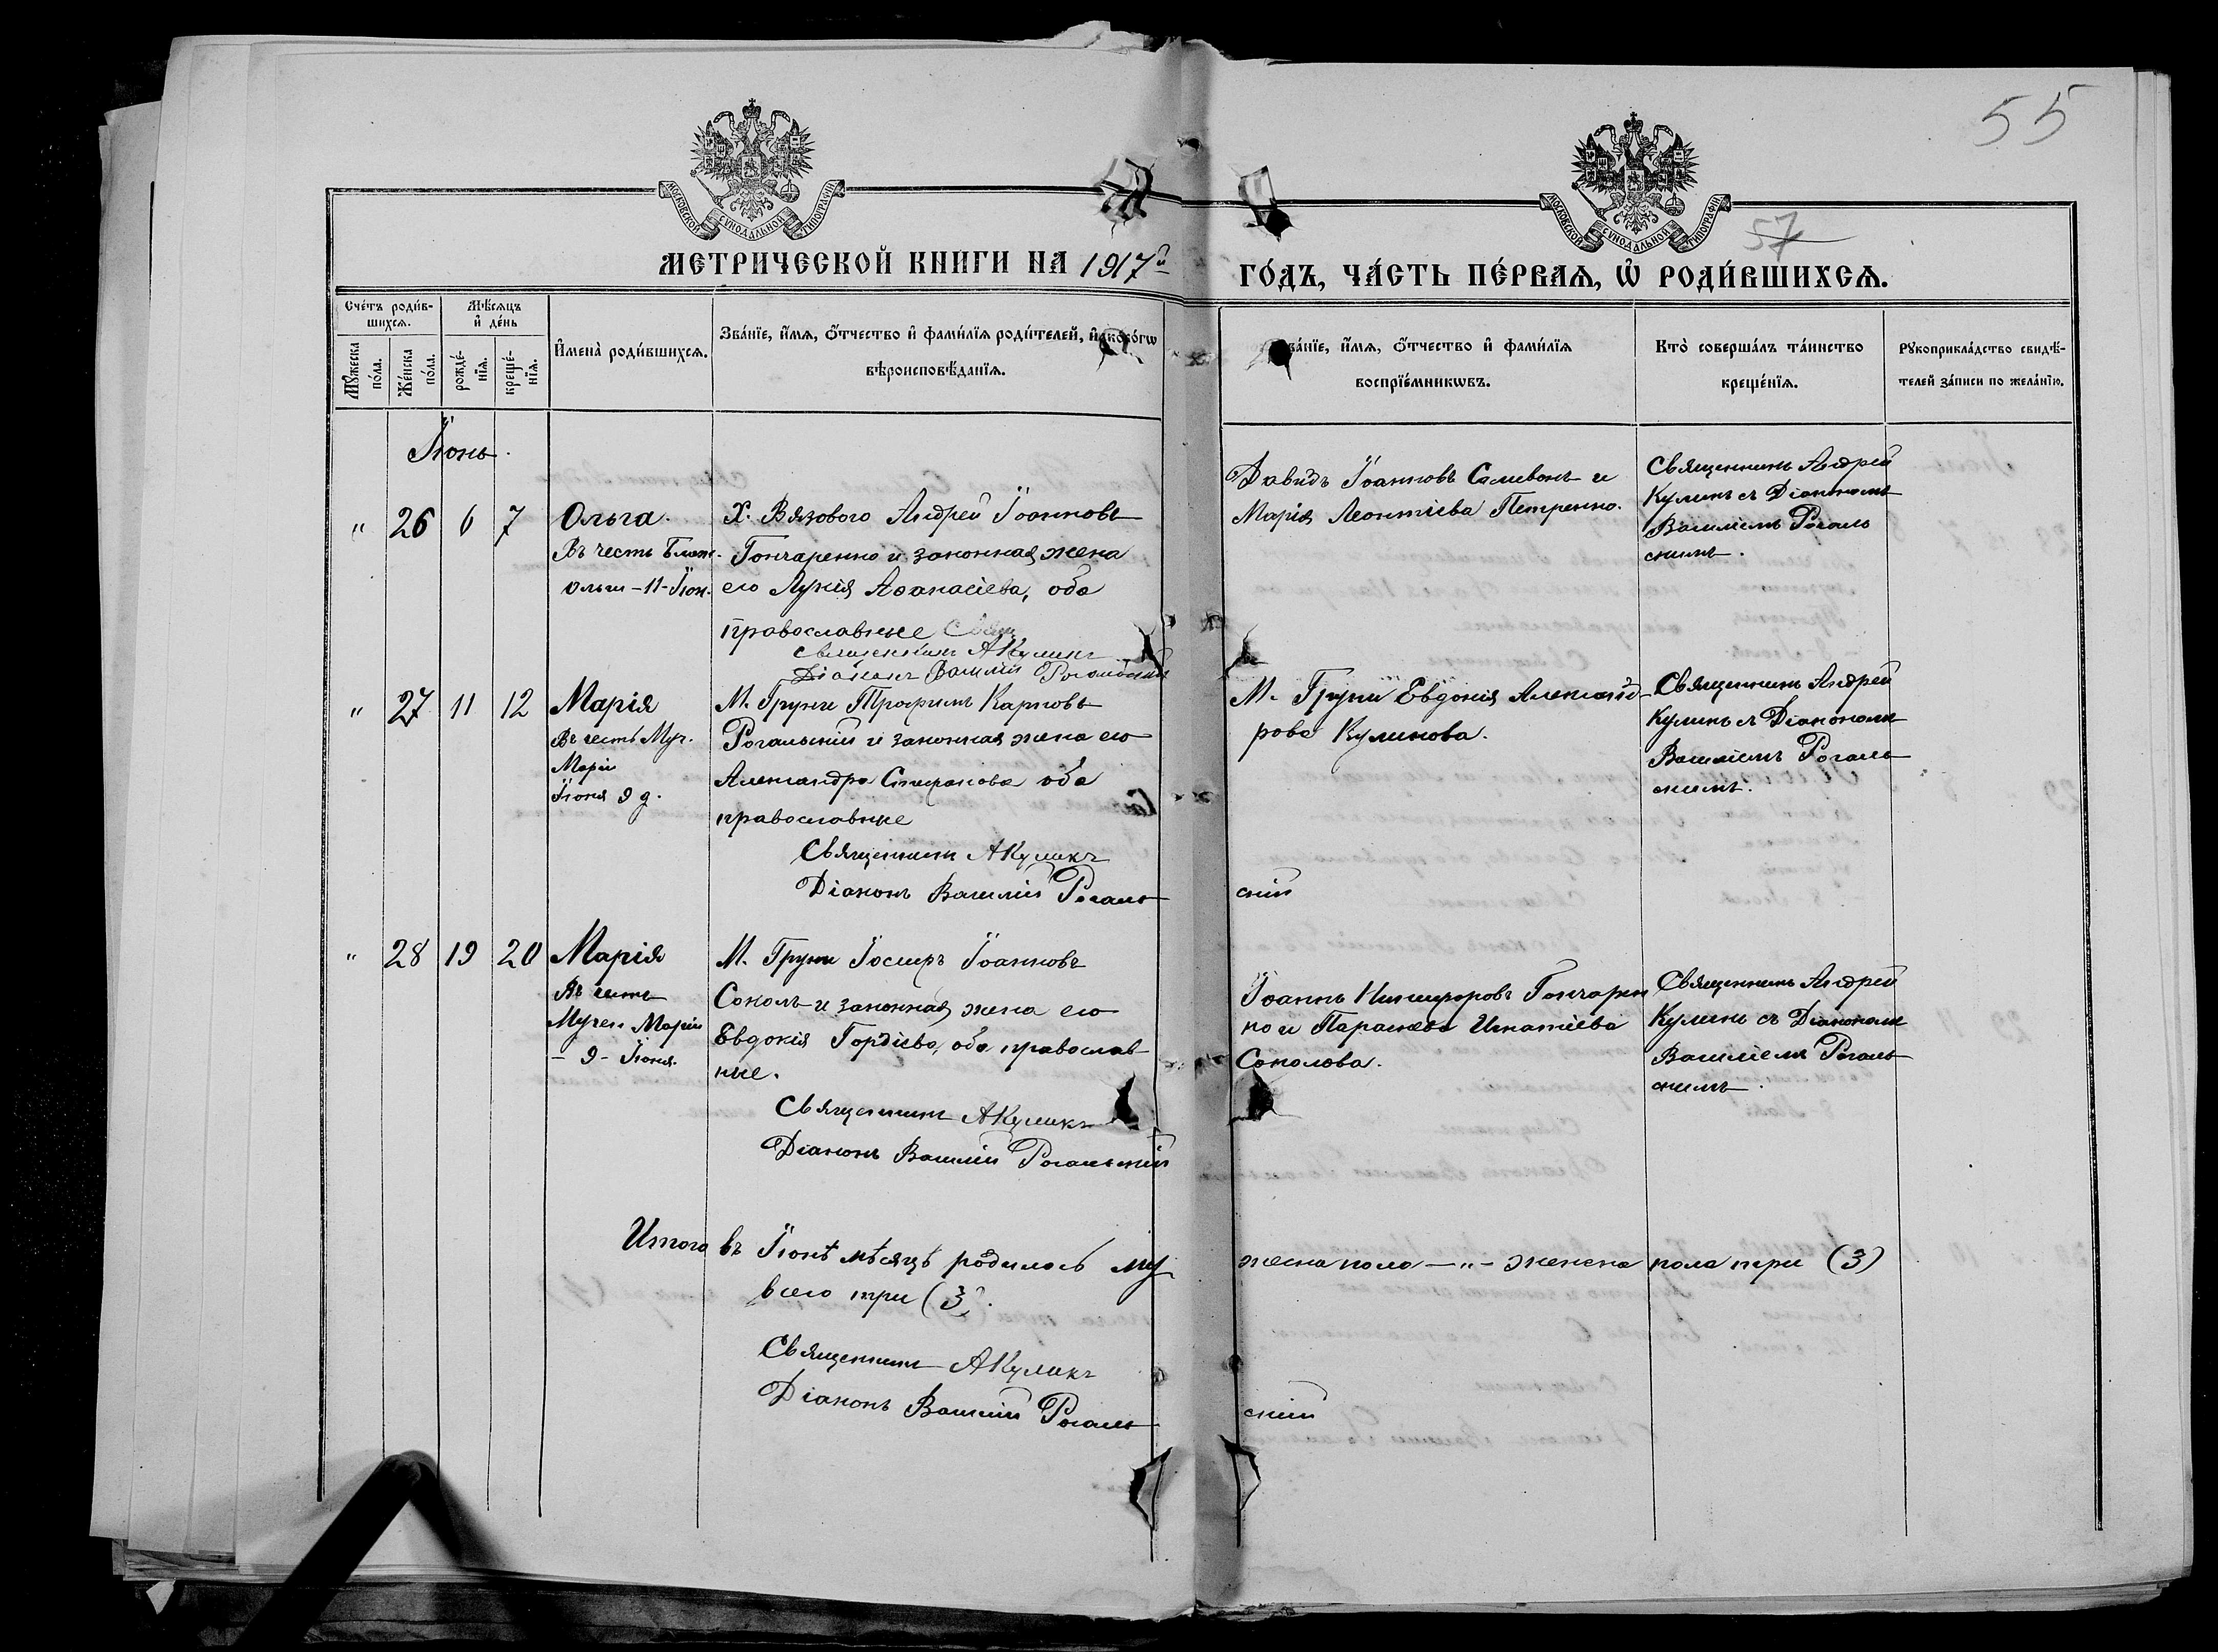 55
57
МОСКОВСКОЙ СУНОДАЛЬНОЙ ТИПОГРАФІИ
МОСКОВСКОЙ СУНОДАЛЬНОЙ ТИПОГРАФІИ
МЕТРИЧЕСКОЙ КНИГИ НА 1917й
ГО́ДЪ, ЧА́СТЬ ПЕ́РВАЯ, Ѿ РОДИ́ВШИХСЯ.
Сче́тъ роди́в-
шихся.
Мѣ́сяцъ
и҆ де́нь
Мꙋ́жеска
по́ла.
Же́нска
по́ла.
рожде́-
нїя.
креще́-
нїя.
И҆мена̀ роди́вшихся.
Зва́нїе, и҆́мя, ѻ҆́тчество и҆ фамилїя роди́телей, и҆ како́гѡ
вѣроисповѣ́данїя.
Зва́нїе, и҆́мя, ѻ҆́тчество и҆ фами́лїя
воспрїе́мникѡвъ.
Кто̀ соверша́лъ та́инство
креще́нїя.
Рꙋкоприкла́дство свидѣ́-
телей за́писи по жела́нїю.
Іюнь.
" 26 6 7
Ольга.
Въ честь Блаж.
Ольги - 11 - Іюл.
Х. Вязового Андрей Іоанновъ
Гончаренко и законная жена
его Лукія Аѳанасіева, оба
православные
Священникъ АКуликъ
Діаконъ Василій Рогальскій
Давидъ Іоанновъ Селивонъ и
Марія Леонтіева Петренко.
Священникъ Андрей
Куликъ съ Діакономъ
Василіемъ Рогаль
скимъ.
" 27 11 12
Марія
Въ честь Муч.
Маріи
Іюня 9 д.
М. Груни Трофимъ Карповъ
Рогальскій и законная жена его
Александра Стефанова оба
православные
Священникъ АКуликъ
Діаконъ Василій Рогаль
скій
М. Груни Евдокія Александ-
рова Куликова.
Священникъ Андрей
Куликъ съ Діакономъ
Василіемъ Рогаль
скимъ.
" 28 19 20
Марія
Въ честь
Мучен. Маріи
- 9 - Іюня.
М. Груни Іосифъ Іоанновъ
Соколъ и законная жена его
Евдокія Гордіева, оба православ-
ные.
Священникъ АКуликъ
Діаконъ Василій Рогальскій
Іоаннъ Никифоровъ Гончарен
ко и Параскева Игнатіева
Соколова.
Священникъ Андрей
Куликъ съ Діакономъ
Василіемъ Рогаль
скимъ.
Итого въ Іюнѣ мѣсяцѣ родилось му
жеска пола — " — женска пола три (3)
всего три (3).
Священникъ АКуликъ
Діаконъ Василій Рогаль
скій